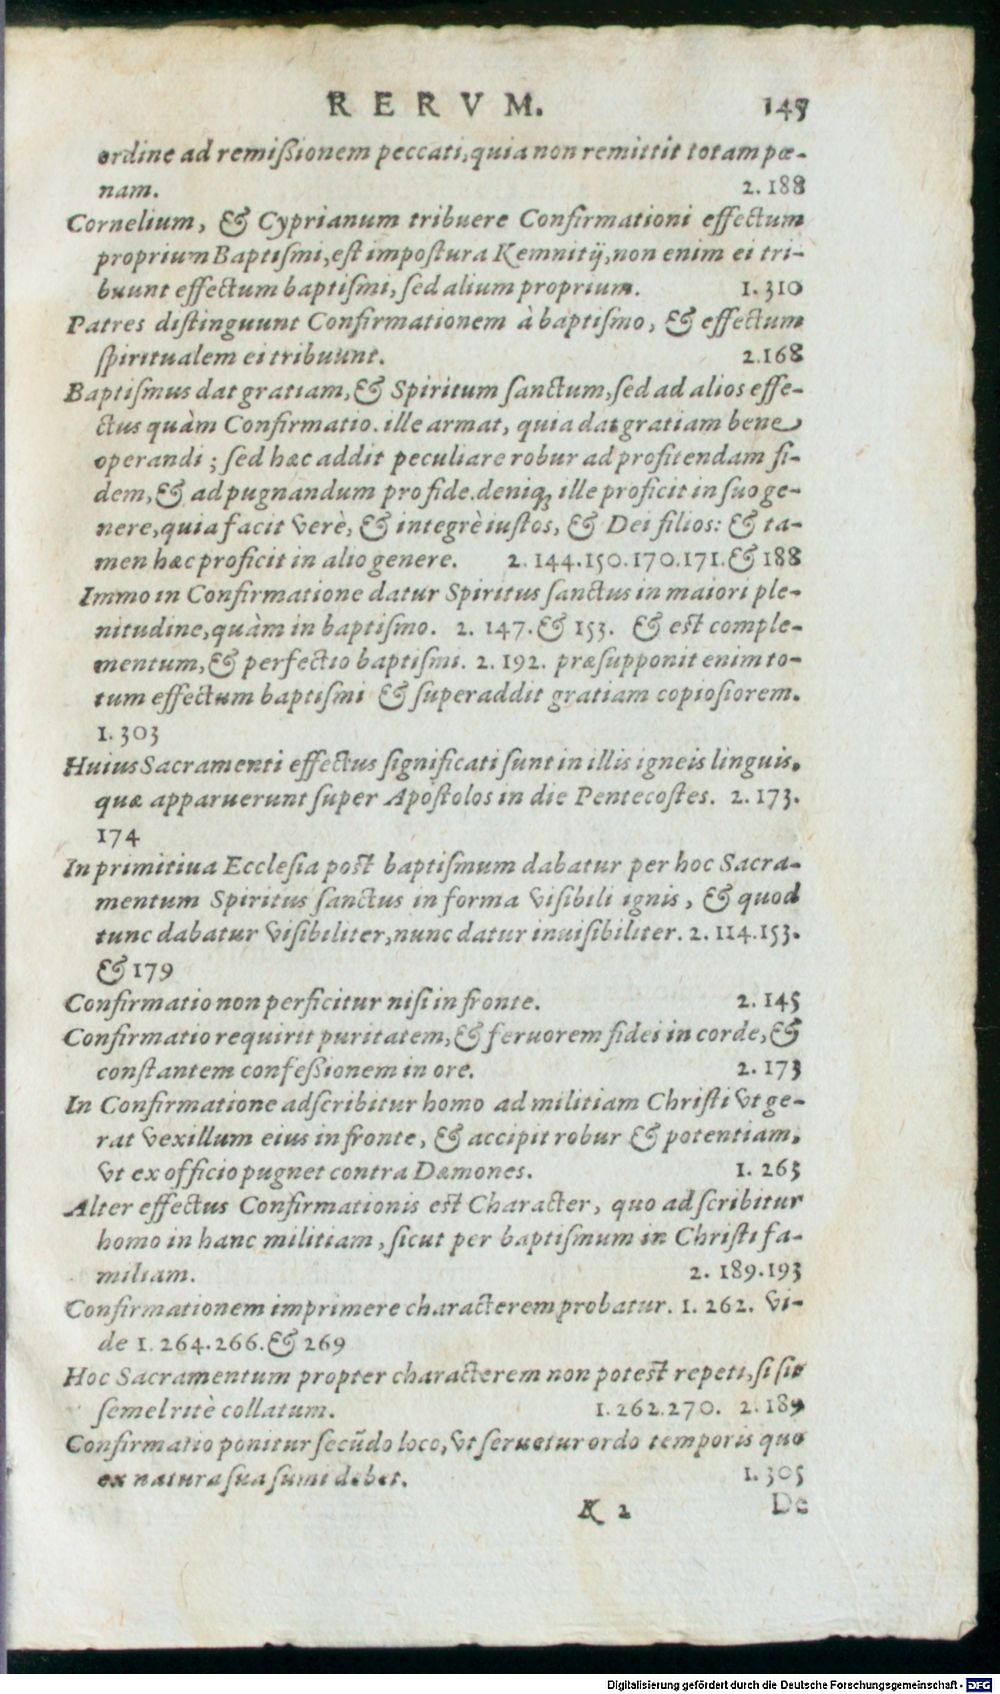 RERVM. 147
ordine ad remißionem peccati, quia non remittit totam pœ-
nam. 2. 188
Cornelium, & Cyprianum tribuere Confirmationi effectum
proprium Baptiſmi, eſt impoſtura Kemnitij, non enim ei tri-
buunt effectum baptiſmi, ſed alium proprium. 1. 310
Patres diſtinguunt Confirmationem à baptiſmo, & effectum
ſpiritualem ei tribuunt. 2. 168
Baptiſmus dat gratiam, & Spiritum ſanctum, ſed ad alios effe-
ctus quàm Confirmatio. ille armat, quia dat gratiam bene
operandi; ſed hæc addit peculiare robur ad profitendam fi-
dem, & ad pugnandum pro fide. deniq; ille proficit in ſuo ge-
nere, quia facit verè, & integrè iuſtos, & Dei filios: & ta-
men hæc proficit in alio genere. 2. 144. 150. 170. 171. & 188
Immo in Confirmatione datur Spiritus ſanctus in maiori ple-
nitudine, quàm in baptiſmo. 2. 147. & 153. & eſt comple-
mentum, & perfectio baptiſmi. 2. 192. præſupponit enim to-
tum effectum baptiſmi & ſuperaddit gratiam copioſiorem.
1. 303
Huius Sacramenti effectus ſignificati ſunt in illis igneis linguis,
quæ apparuerunt ſuper Apoſtolos in die Pentecoſtes. 2. 173.
174
In primitiua Eccleſia poſt baptiſmum dabatur per hoc Sacra-
mentum Spiritus ſanctus in forma viſibili ignis, & quod
tunc dabatur viſibiliter, nunc datur inuiſibiliter. 2. 114. 153.
& 179
Confirmatio non perficitur niſi in fronte. 2. 145
Confirmatio requirit puritatem, & feruorem fidei in corde, &
conſtantem confeßionem in ore. 2. 173
In Confirmatione adſcribitur homo ad militiam Chriſti vt ge-
rat vexillum eius in fronte, & accipit robur & potentiam,
vt ex officio pugnet contra Dæmones. 1. 265
Alter effectus Confirmationis eſt Character, quo adſcribitur
homo in hanc militiam, ſicut per baptiſmum in Chriſti fa-
miliam. 2. 189. 193
Confirmationem imprimere characterem probatur. 1. 262. vi-
de 1. 264. 266. & 269
Hoc Sacramentum propter characterem non poteſt repeti, ſi ſit
ſemel ritè collatum. 1. 262. 270. 2. 189
Confirmatio ponitur ſecũdo loco, vt ſeruetur ordo temporis quo
ex natura ſua ſumi debet. 1. 305
K 2 De
Digitalisierung gefördert durch die Deutsche Forschungsgemeinschaft - DFG